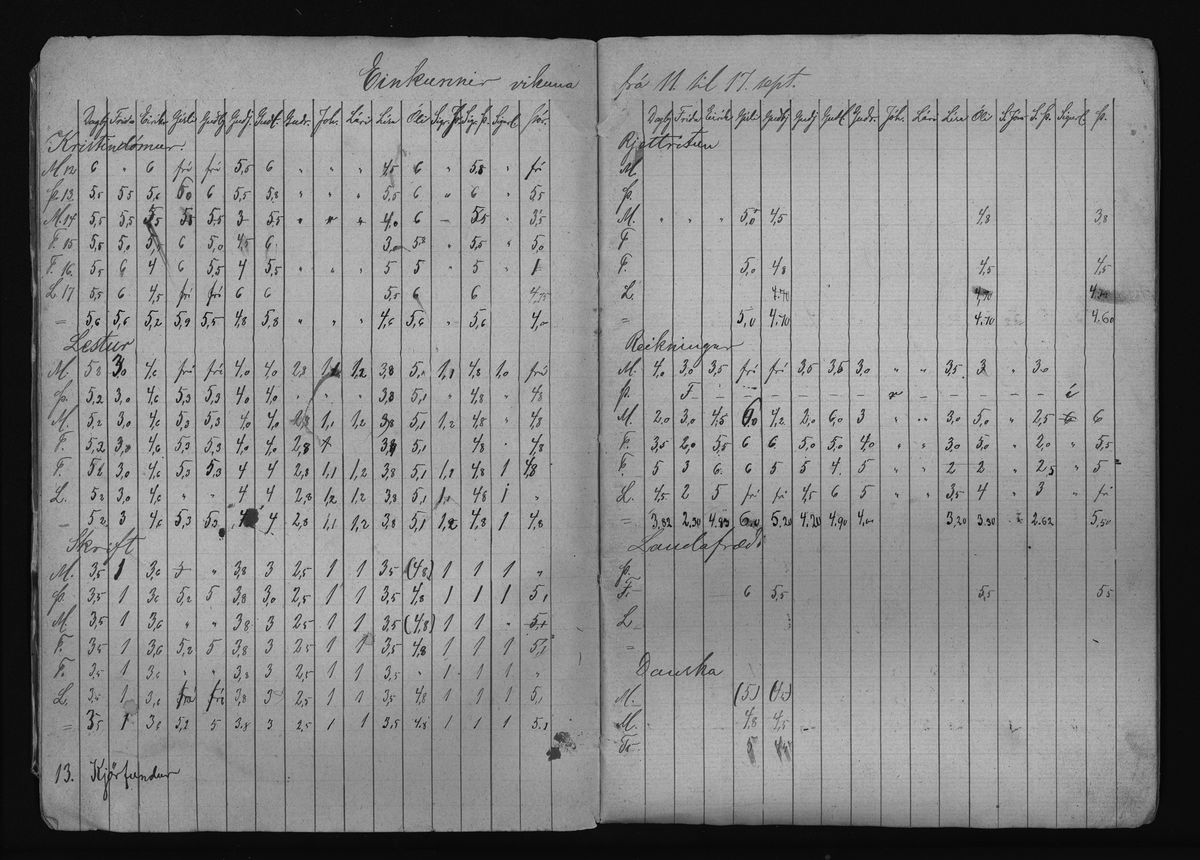 Einkunnir vikuna
Dagbj Frida Eirík Gísli Gudbj Gudj Gudl. Gudr. Joh. Lári Lina Óli
Kristindómur.
M 12 6 " 6 frí frí 5,5 6 " " " 4,5 6 " 5,8 " frí
Þ. 13 5,5 5,5 5,6 5,0 6 5,5 5,8 " " " 5,5 6 " 6 " 5,5
M. 14 5,5 5,5 5,5 5,5 5,5 3 5,5 " " " 4,0 6 – 5,5 " 3,5
F. 15 5,5 5,0 6 5,0 4,5 6 3,0 " 5,5 " 5,0
F. 16. 5,5 6 4 6 5,5 4 5,5 " " " 5 5 " 5 " 1
L. 17 5,5 6 4,5 frí frí 6 6 5,5 6 6 4,75
= 5,6 5,6 5,2 5,9 5,5 4,8 5,8 " " " 4,6 5,6 " 5,6 4,0
Lestur
M. 5,2 3,0 4,6 frí frí 4,0 4,0 2,8 1,1 1,2 3,8 5,1 4,8 1,0 frí
Þ. 5,2 3,0 4,6 5,3 5,3 4,0 4,0 " " " 3,8 5,1 " 4,8 " 4,8
M. 5,2 3,0 4,6 5,3 5,3 4,0 4,0 2,8 1,1 1,2 3,8 5,1 1,2 4,8 " 4,8
F. 5,2 3,0 4,6 5,3 5,3 4,0 4,0 2,8 5,1 4,8 " 4,8
F. 5,2 3,0 4,6 5,3 5,3 4 4 2,8 1,1 1,2 3,8 5,1 4,8 1 4,8
L. 5,2 3,0 4,6 " " 4 4 2,8 1,2 1,2 3,8 5,1 4,8 1 "
= 5,2 3 4,6 5,3 5,3 4 4 2,8 1,1 1,2 3,8 5,1 1,2 4,8 1 4,8
Skrift
M. 3,5 1 3,6 " 3,8 3 2,5 1 1 3,5 (4,8) 1 1 1 "
Þ. 3,5 1 3,6 5,2 5 3,8 3,0 2,5 1 1 3,5 4,8 1 1 1 5,1
M. 3,5 1 3,6 " " 3,8 3 2,5 1 1 3,5 (4,8) 1 1 " 5,1
F. 3,5 1 3,6 5,2 5 3,8 3 2,5 1 1 3,5 4,8 1 1 1 5,1
F. 3,5 1 3,6 " " 3,8 3 2,5 1 1 3,5 " 1 1 1 "
L. 3,5 1 3,6 frí frí 3,8 3 2,5 1 1 3,5 4,8 1 1 1 5,1
= 3,5 1 3,6 5,2 5 3,8 3 2,5 1 1 3,5 4,8 1 1 1 5,1
13. Kjörfundur
frá 11 til 17. sept.
Dagbj Frida Eirik Gísli Gudbj Gudj Gudl Gudr. Jóh. Lári Lina Óli S. Jóns S. Þ. Sigurl Þ.
Rjettritun
M
Þ.
M. " " " 5,0 4,5 4,8 3,8
F
F. 5,0 4,8 4,5 4,5
L. 4.70 4,70
= 5,0 4.70 4.70 4.60
Reikningur
M. 4,0 3,0 3,5 frí frí 3,5 3,5 3,0 3,5 3 3,0
Þ. F – – – – – – – – – –
M. 2,0 3,0 4,5 6,0 4,2 2,0 6,0 3 " " 3,0 5,0 " 2,5 6
F. 3,5 2,0 5,5 6 6 5,0 5,0 4,0 " " 3,0 5,0 " 2,0 " 5,5
F. 5 3 6 6 5 5 4 5 " " 2 2 " 2,5 " 5
L. 4,5 2 5 frí frí 4,5 6 5 " " 3,5 4 " 3 " frí
= 3,82 2,50 4.83 6.0 5,20 4.20 4,90 4,00 3,20 2.62 5,50
Landafrædi
Þ.
F. 6 5,5 5,5 5,5
L.
=
Danska
M. (5) (4,5)
M. 4,8 4,5
F. 5